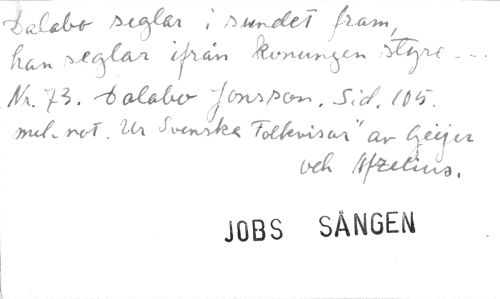 Dalabo seglar i sundet fram,
han seglar ifrån konungen styre ---
Nr. 73. Dalabo Jonsson. Sid. 105.
mel. not. Ur Svenska Folkvisor" av Geijer
och Afzelius.
JOBS SÅNGEN